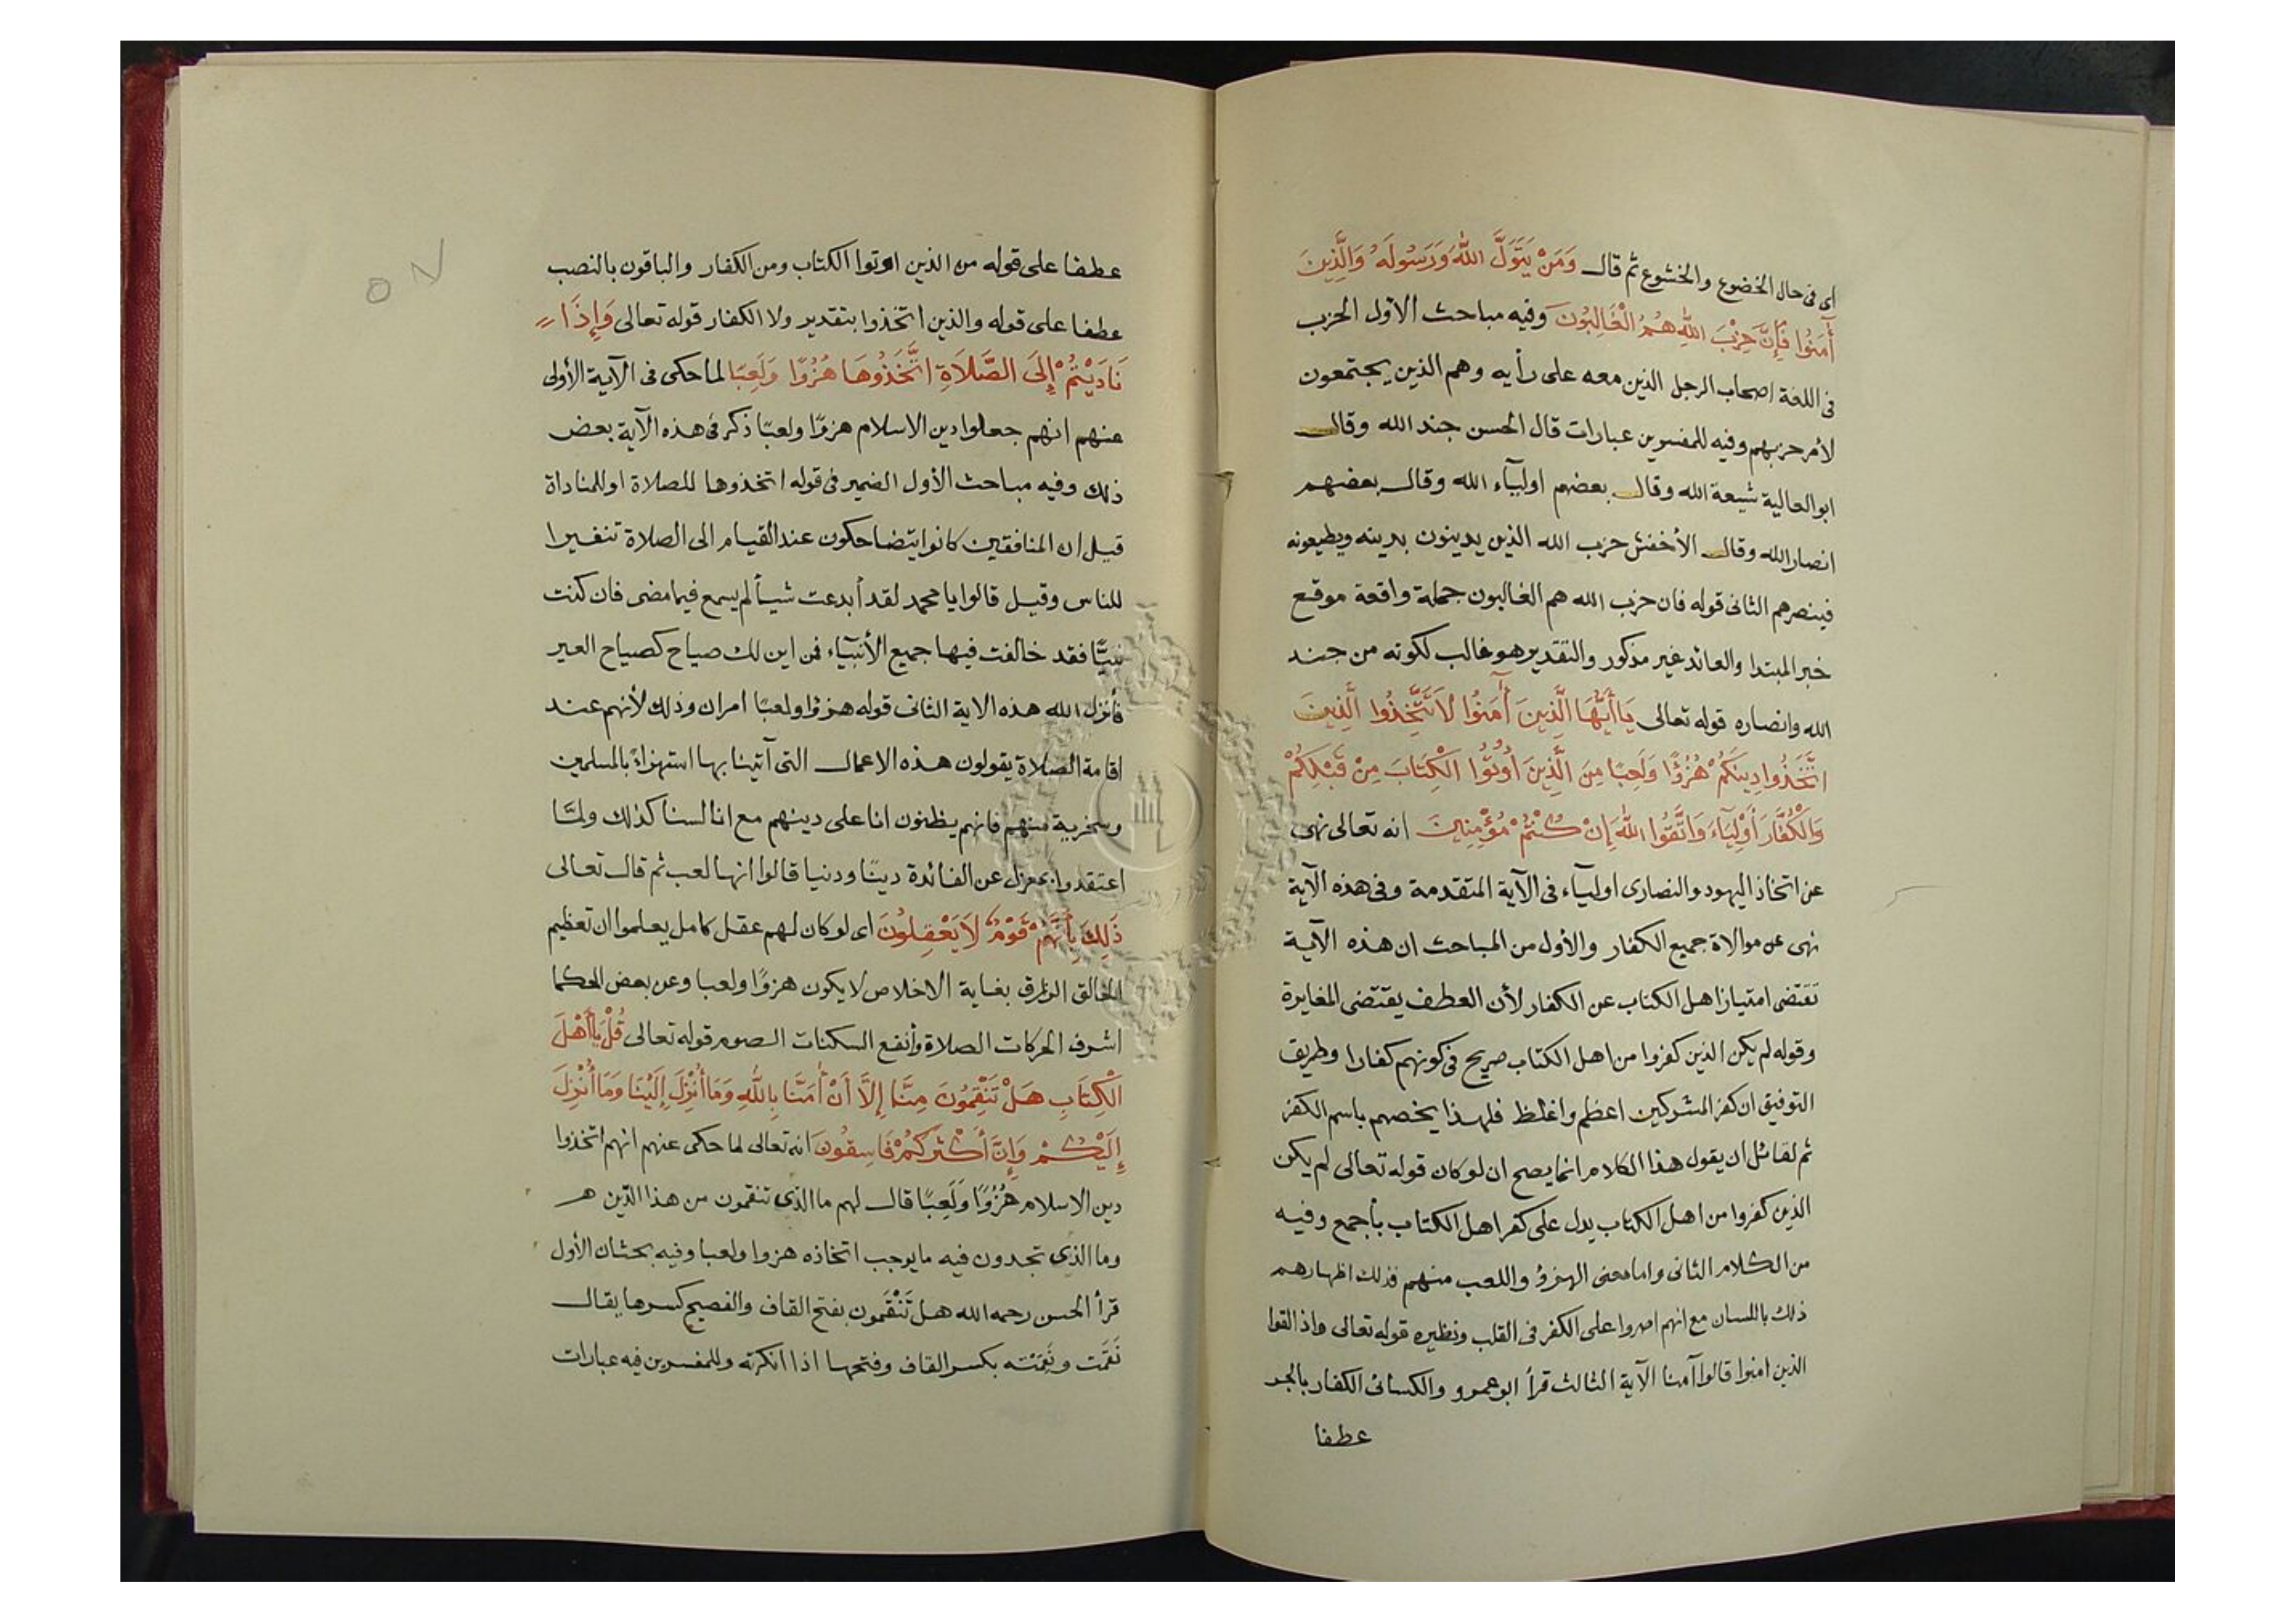 اى فى حال الخضوع والخشوع ثم قال وَمَنْ يَتَوَلَّ اللهَ وَرَسُولَهُ وَالَّذِينَ
آمَنُوا فَإِنَّ حِزْبَ اللهِ هُمُ الْغَالِبُونَ وفيه مباحث الأول الحزب
فى اللغة اصحاب الرجل الذين معه على رأيه وهم الذين يجتمعون
لأمر حزبهم وفيه للمفسرين عبارات قال الحسن جند الله وقال
ابو العالية شيعة الله وقال بعضهم اوليآء الله وقال بعضهم
انصار الله وقال الأخفش حزب الله الذين يدينون بدينه ويطيعونه
فينصرهم الثانى قوله فان حزب الله هم الغالبون جملة واقعة موقع
خبر المبتدا والعائد غير مذكور والتقدير هو غالب لكونه من جند
الله وانصاره قوله تعالى يَاأَيُّهَا الَّذِينَ أَمَنُوا لاَ تَتَّخِذُوا الَّذِينَ
اتَّخَذُوا دِينَكُمْ هُزُؤًا وَلَعِبًا مِنَ الَّذِينَ أُوتُوا الْكِتَابَ مِنْ قَبْلِكُمْ
وَالْكُفَّارَ أَوْلِيَآءَ وَاتَّقُوا اللهَ إِنْ كُنْتُمْ مُؤْمِنِينَ انه تعالى نهى
عن اتخاذ اليهود والنصارى اوليآء فى الآية المتقدمة وفى هذه الآية
نهى عن موالاة جميع الكفار والأول من المباحث ان هذه الآية
تقتضى امتياز اهل الكتاب عن الكفار لأن العطف يقتضى المغايرة
وقوله لم يكن الذين كفروا من اهل الكتاب صريح فى كونهم كفارا وطريق
التوفيق ان كفر المشركين اعظم واغلظ فلهذا يخصهم باسم الكفر
ثم لقائل ان يقول هذا الكلام انما يصح ان لو كان قوله تعالى لم يكن
الذين كفروا من اهل الكتاب يدل على كفر اهل الكتاب بأجمع وفيه
من الكلام الثانى واما معنى الهزؤ واللعب منهم فذلك اظهارهم
ذلك باللسان مع انهم اصروا على الكفر فى القلب ونظيره قوله تعالى واذا لقوا
الذين امنوا قالوا آمنا الآية الثالث قرأ ابو عمرو والكسائى الكفار بالجر
عطفا
عطفا على قوله من الذين اوتوا الكتاب ومن الكفار والباقون بالنصب
عطفا على قوله والذين اتخذوا بتقدير ولا الكفار قوله تعالى وَإِذَا
نَادَيْتُمْ إِلَى الصَّلاَةِ اتَّخَذُوهَا هُزُوًا وَلَعِبًا لما حكى فى الآية الأولى
عنهم انهم جعلوا دين الاسلام هزوًا ولعبًا ذكر فى هذه الآية بعض
ذلك وفيه مباحث الأول الضمير فى قوله اتخذوها للصلاة او للمناداة
قيل ان المنافقين كانوا يتضاحكون عند القيام الى الصلاة تنفيرا
للناس وقيل قالوا يا محمد لقد أبدعت شيأ لم يسمع فيما مضى فان كنت
نبيًّا فقد خالفت فيها جميع الأنبيآء فمن اين لك صياح كصياح العير
فأنزل الله هذه الاية الثانى قوله هزوًا ولعبًا امران وذلك لأنهم عند
اقامة الصلاة يقولون هذه الاعمال التى آتينا بها استهزاءً بالمسلمين
وسخرية منهم فانهم يظنون انا على دينهم مع انا لسنا كذلك ولمّا
اعتقدوا بمعزل عن الفائدة دينًا ودنيا قالوا انها لعب ثم قال تعالى
ذَلِكَ بِأَنَّهُمْ قَوْمٌ لاَ يَعْقِلُونَ اى لو كان لهم عقل كامل يعلموا ان تعظيم
الخالق الرازق بغاية الاخلاص لا يكون هزوًا ولعبا وعن بعض الحكما
اشرف الحركات الصلاة وأنفع السكنات الصوم قوله تعالى قُلْ يَاأَهْلَ
الْكِتَابِ هَلْ تَنْقِمُونَ مِنَّا إِلاَّ أَنْ أَمَنَّا بِاللهِ وَمَا أُنْزِلَ إِلَيْنَا وَمَا أُنْزِلَ
إِلَيْكُمْ وَإِنَّ أَكْثَرَكُمْ فَاسِقُونَ انه تعالى لما حكى عنهم انهم اتخذوا
دين الاسلام هُزُوًا وَلَعِبًا قال لهم ما الذى تنقمون من هذا الدّين
وما الذى تجدون فيه ما يوجب اتخاذه هزوا ولعبا وفيه بحثان الأول
قرأ الحسن رحمه الله هل تَنْقَمون بفتح القاف والفصيح كسرها يقال
نَقَمت ونَقِمته بكسر القاف وفتحها اذا انكرته وللمفسرين فيه عبارات
٥٧